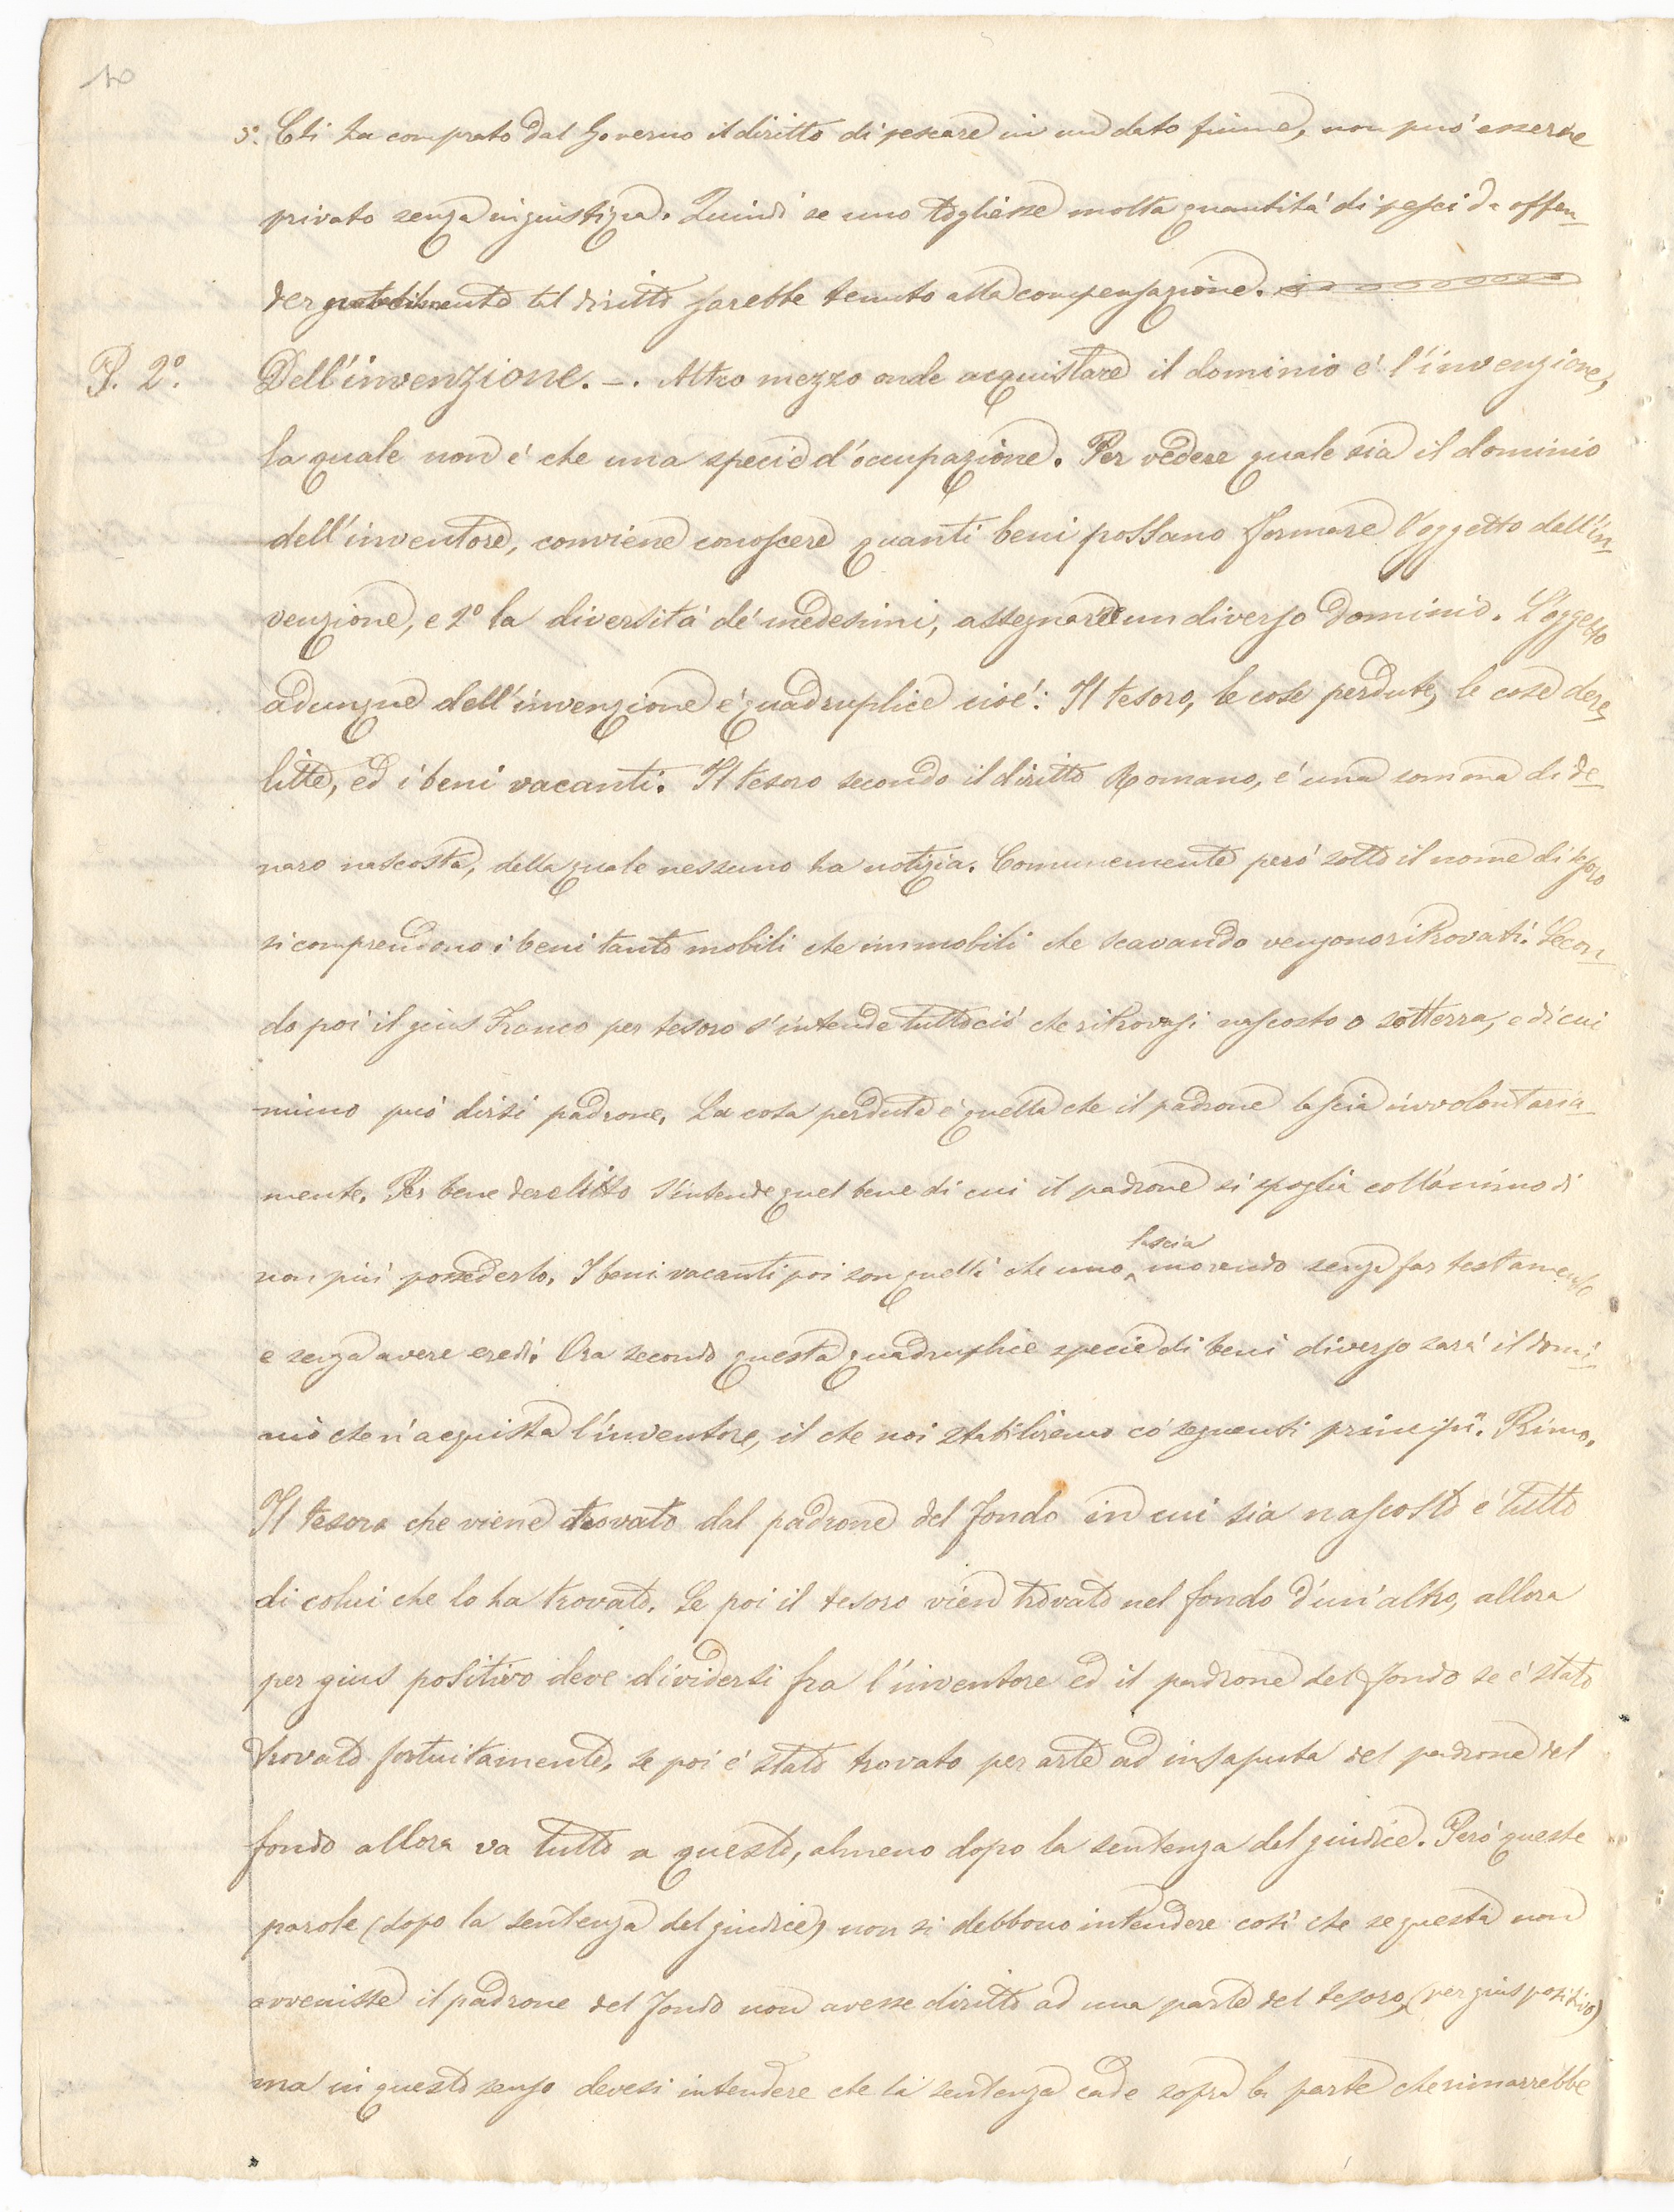 10
5.° Chi ha comprato dal Governo il diritto di pescare in un dato fiume, non può esserne
privato senza ingiustizia. Quindi se uno togliesse molta quantità di pesci da offen-
der notabilmente tal diritto sarebbe tenuto alla compensazione.
P. 2°. Dell'invenzione. —. Altro mezzo onde acquistare il dominio é l'invenzione,
la quale non é che una specie d'occupazione. Per vedere quale sia il dominio
dell'inventore, conviene conoscere quanti beni possano formare l'oggetto dell'in-
venzione, e 2° la diversità de' medesimi, assegnare un diverso dominio. L'oggetto
adunque dell'invenzione é quadruplice cioé: Il tesoro, le cose perdute, le cose dere-
litte, ed i beni vacanti. Il tesoro secondo il diritto Romano, é una somma di de-
naro nascosta, della quale nessuno ha notizia. Comunemente però sotto il nome di tesoro
si comprendono i beni tanto mobili che immobili che scavando vengono ritrovati. Secon-
do poi il gius Franco per tesoro s'intende tuttociò che ritrovasi nascosto o sotterra, e di cui
niuno può dirsi padrone. La cosa perduta é quella che il padrone lascia involontaria-
mente. Per bene derelitto s'intende quel bene di cui il padrone si spoglia coll'animo di
non più possederlo. I beni vacanti poi son quelli che uno lascia morendo senza far testamento
e senza avere eredi. Ora secondo questa quadruplice specie di beni diverso sarà il domi-
nio che n'acquista l'inventore, il che noi stabiliremo co' seguenti principii. Primo.
Il tesoro che viene trovato dal padrone del fondo in cui sia nascosto é tutto
di colui che lo ha trovato. Se poi il tesoro vien trovato nel fondo d'un'altro, allora
per gius positivo deve dividersi fra l'inventore ed il padrone del fondo se é stato
trovato fortuitamente, se poi é stato trovato per arte ad insaputa del padrone del
fondo allora va tutto a questo, almeno dopo la sentenza del giudice. Però queste
parole (dopo la sentenza del giudice) non si debbono intendere così che se questa non
avvenisse il padrone del fondo non avesse diritto ad una parte del tesoro, (per gius positivo)
ma in questo senso devesi intendere che la sentenza cade sopra la parte che rimarrebbe